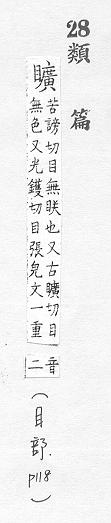 28 類篇
矌 苦謗切目無眹也又古曠切目
無色又光鑊切目張皃文一重
音二
(目部. p118)